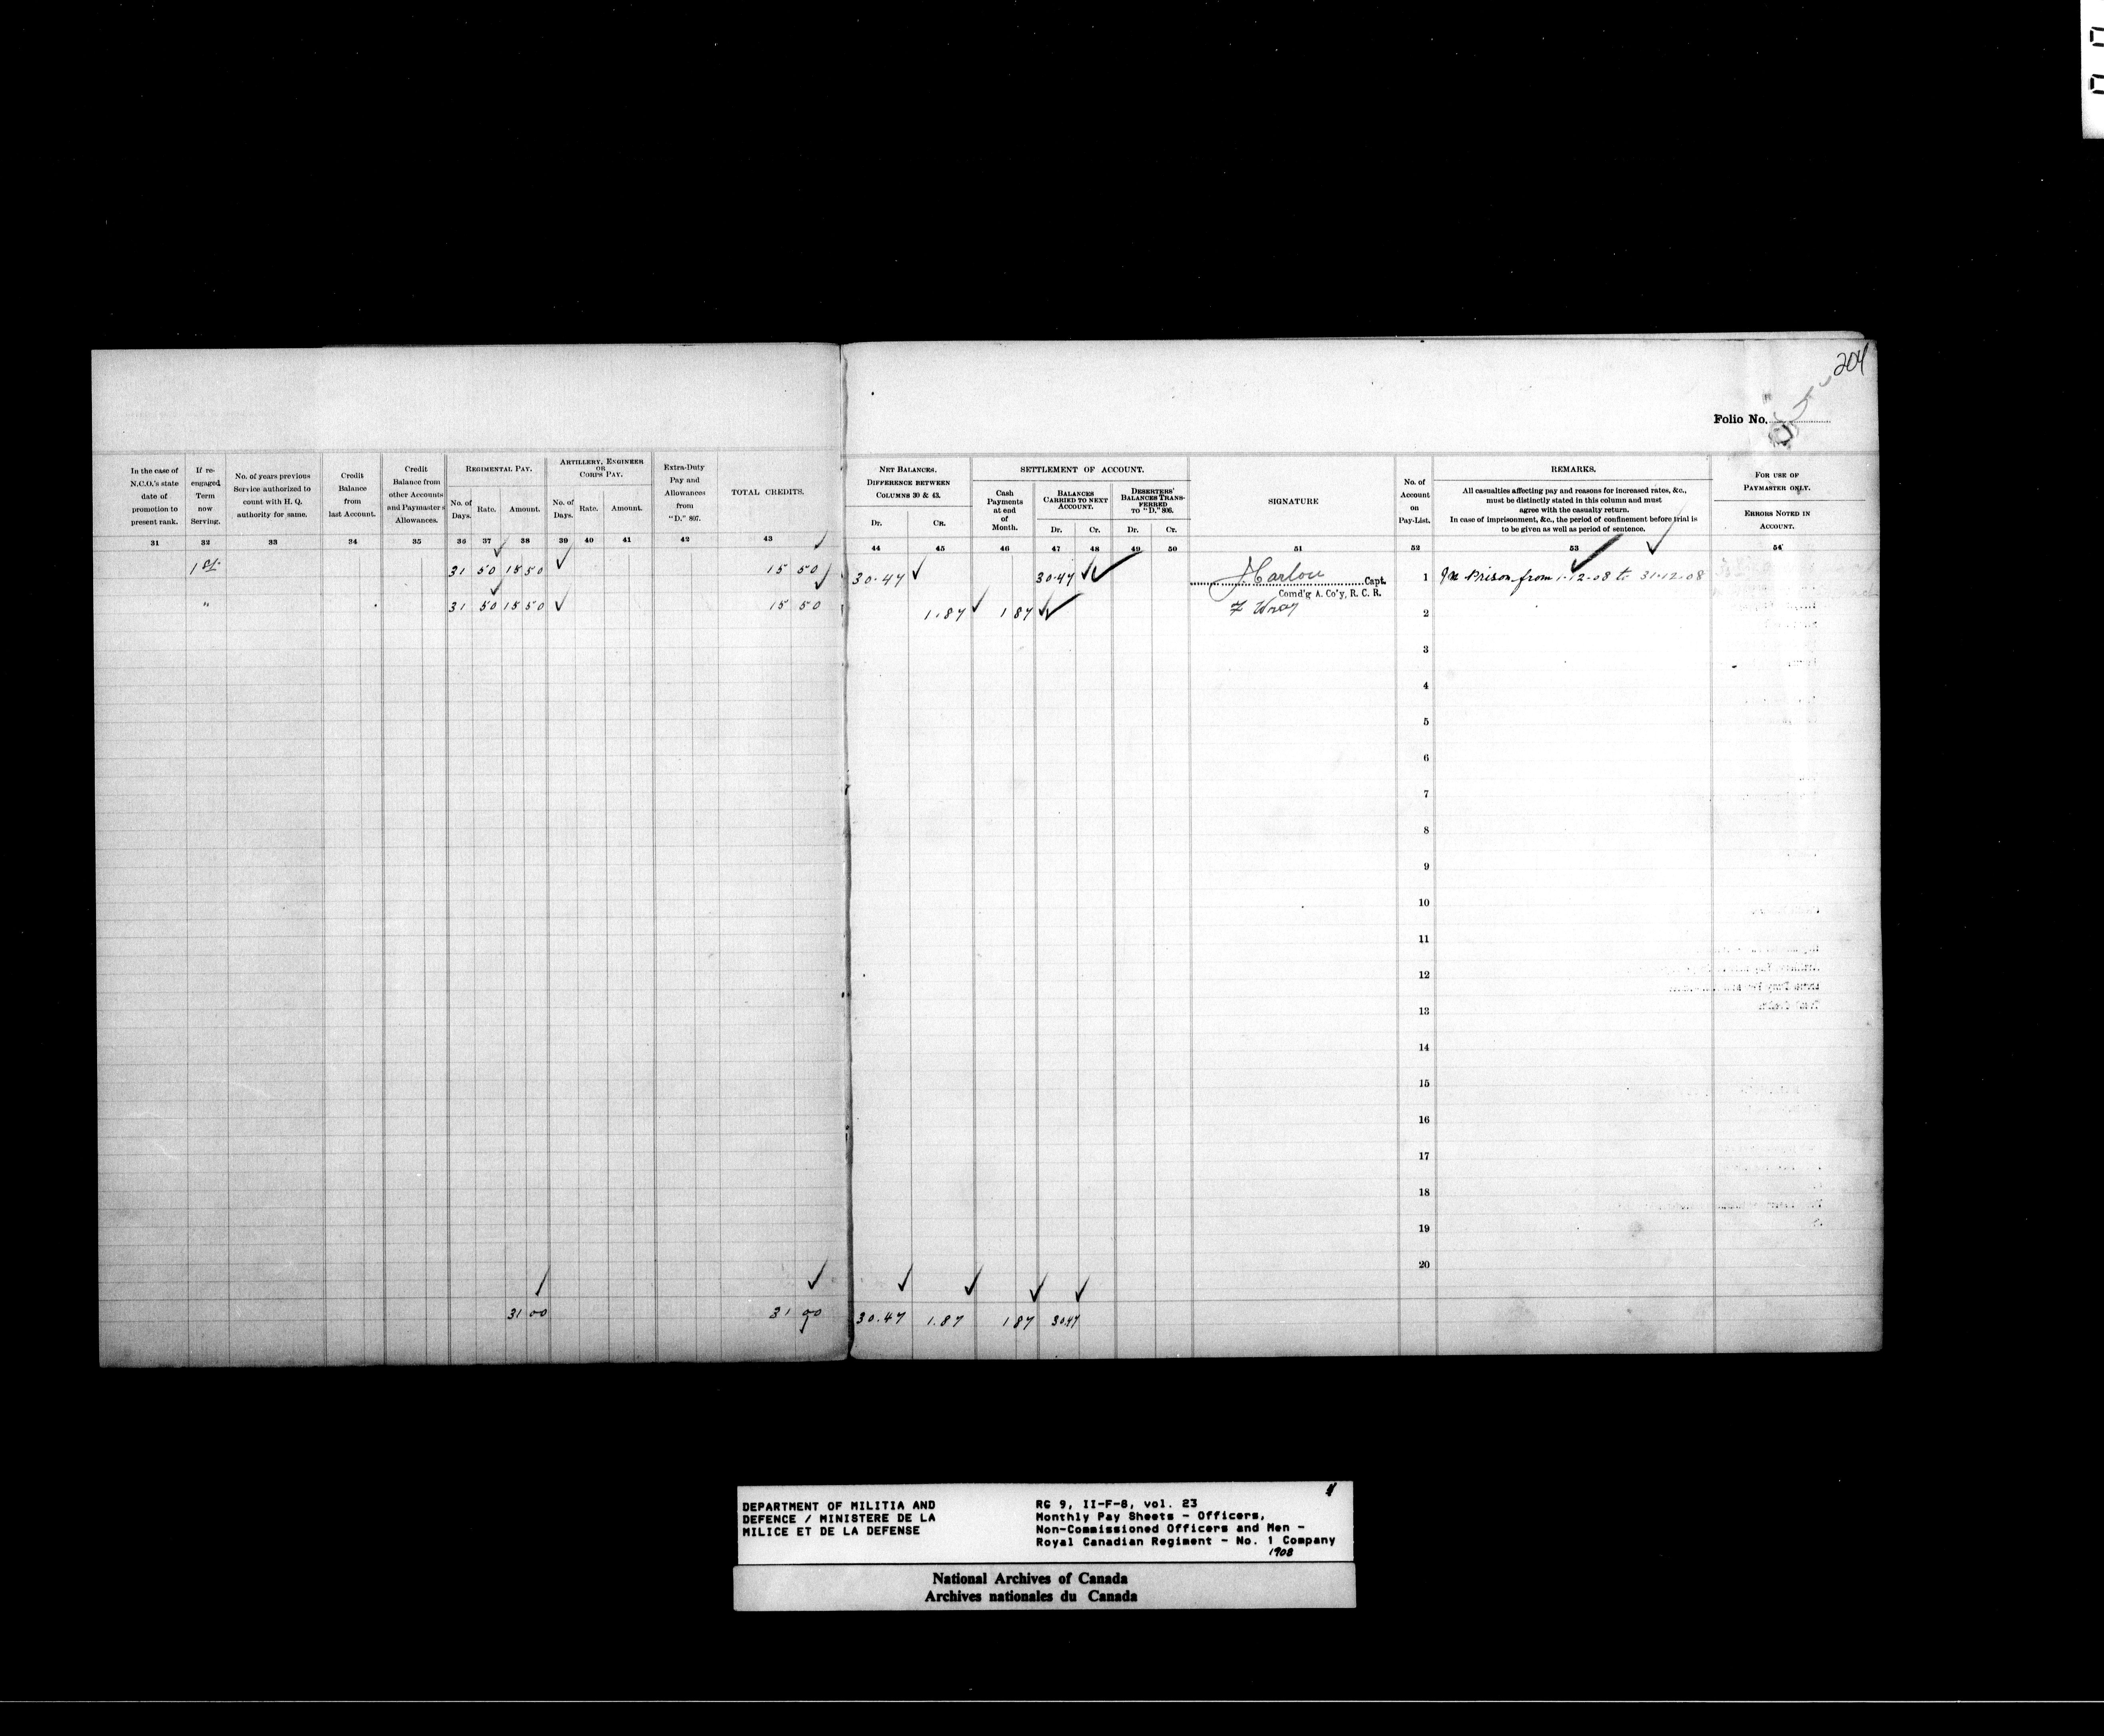 204
Folio No. 5
In the case of N.C.O.'s state date of promotion to present rank.
If re-engaged Term now Serving.
No. of years previous Service authorized to count with H. Q. authority for same.
Credit Balance from last Account.
Credit Balance from other Accounts and Paymaster's Allowances.
REGIMENTAL PAY.
No. of Days. Rate. Amount.
ARTILLERY, ENGINEER OR CORPS PAY.
No. of Days. Rate. Amount.
Extra-Duty Pay and Allowances from "D." 807.
TOTAL CREDITS.
NET BALANCES.
DIFFERENCE BETWEEN
COLUMNS 30 & 43.
Dr. CR.
SETTLEMENT OF ACCOUNT.
Cash Payments at end of Month.
BALANCES CARRIED TO NEXT ACCOUNT.
Dr. Cr.
DESERTERS' BALANCES TRANSFERRED TO "D." 806.
Dr. Cr.
SIGNATURE
No. of Account on Pay-List.
REMARKS.
All casualties affecting pay and reasons for increased rates, &c.,
must be distinctly stated in this column and must
agree with the casualty return.
In case of imprisonment, &c., the period of confinement before trial is
to be given as well as period of sentence.
FOR USE OF
PAYMASTER ONLY.
ERRORS NOTED IN
ACCOUNT.
31 32 33 34 35 36 37 38 39 40 41 42 43 44 45 46 47 48 49 50 51 52 53 54
1st 31 50 15 50 15 50 30.47 30.47 Capt. 1 In Prison from 1-12-08 to 31-12-08
Comd'g A. Co'y, R. C. R.
" 31 50 15 50 15 50 1.87 1 87 F Wray 2
3
4
5
6
7
8
9
10
11
12
13
14
15
16
17
18
19
20
31 00 31 00 30.47 1.87 1 87 30.47
DEPARTMENT OF MILITIA AND
DEFENCE / MINISTERE DE LA
MILICE ET DE LA DEFENSE
RG 9, II-F-8, vol. 23
Monthly Pay Sheets - Officers,
Non-Commissioned Officers and Men -
Royal Canadian Regiment - No. 1 Company
1908
National Archives of Canada
Archives nationales du Canada